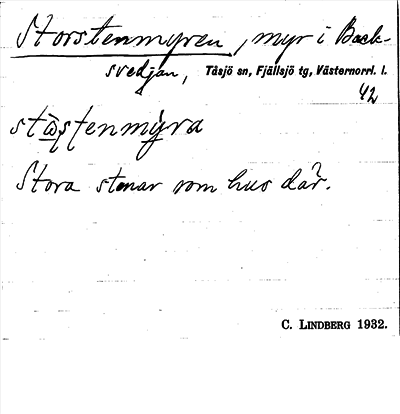 Storstenmyren, myr i Back-
svedjan, Tåsjö sn, Fjällsjö tg, Västernorrl. l.
42
stenmyra
Stora stenar som hus där.
C. LINDBERG 1932.